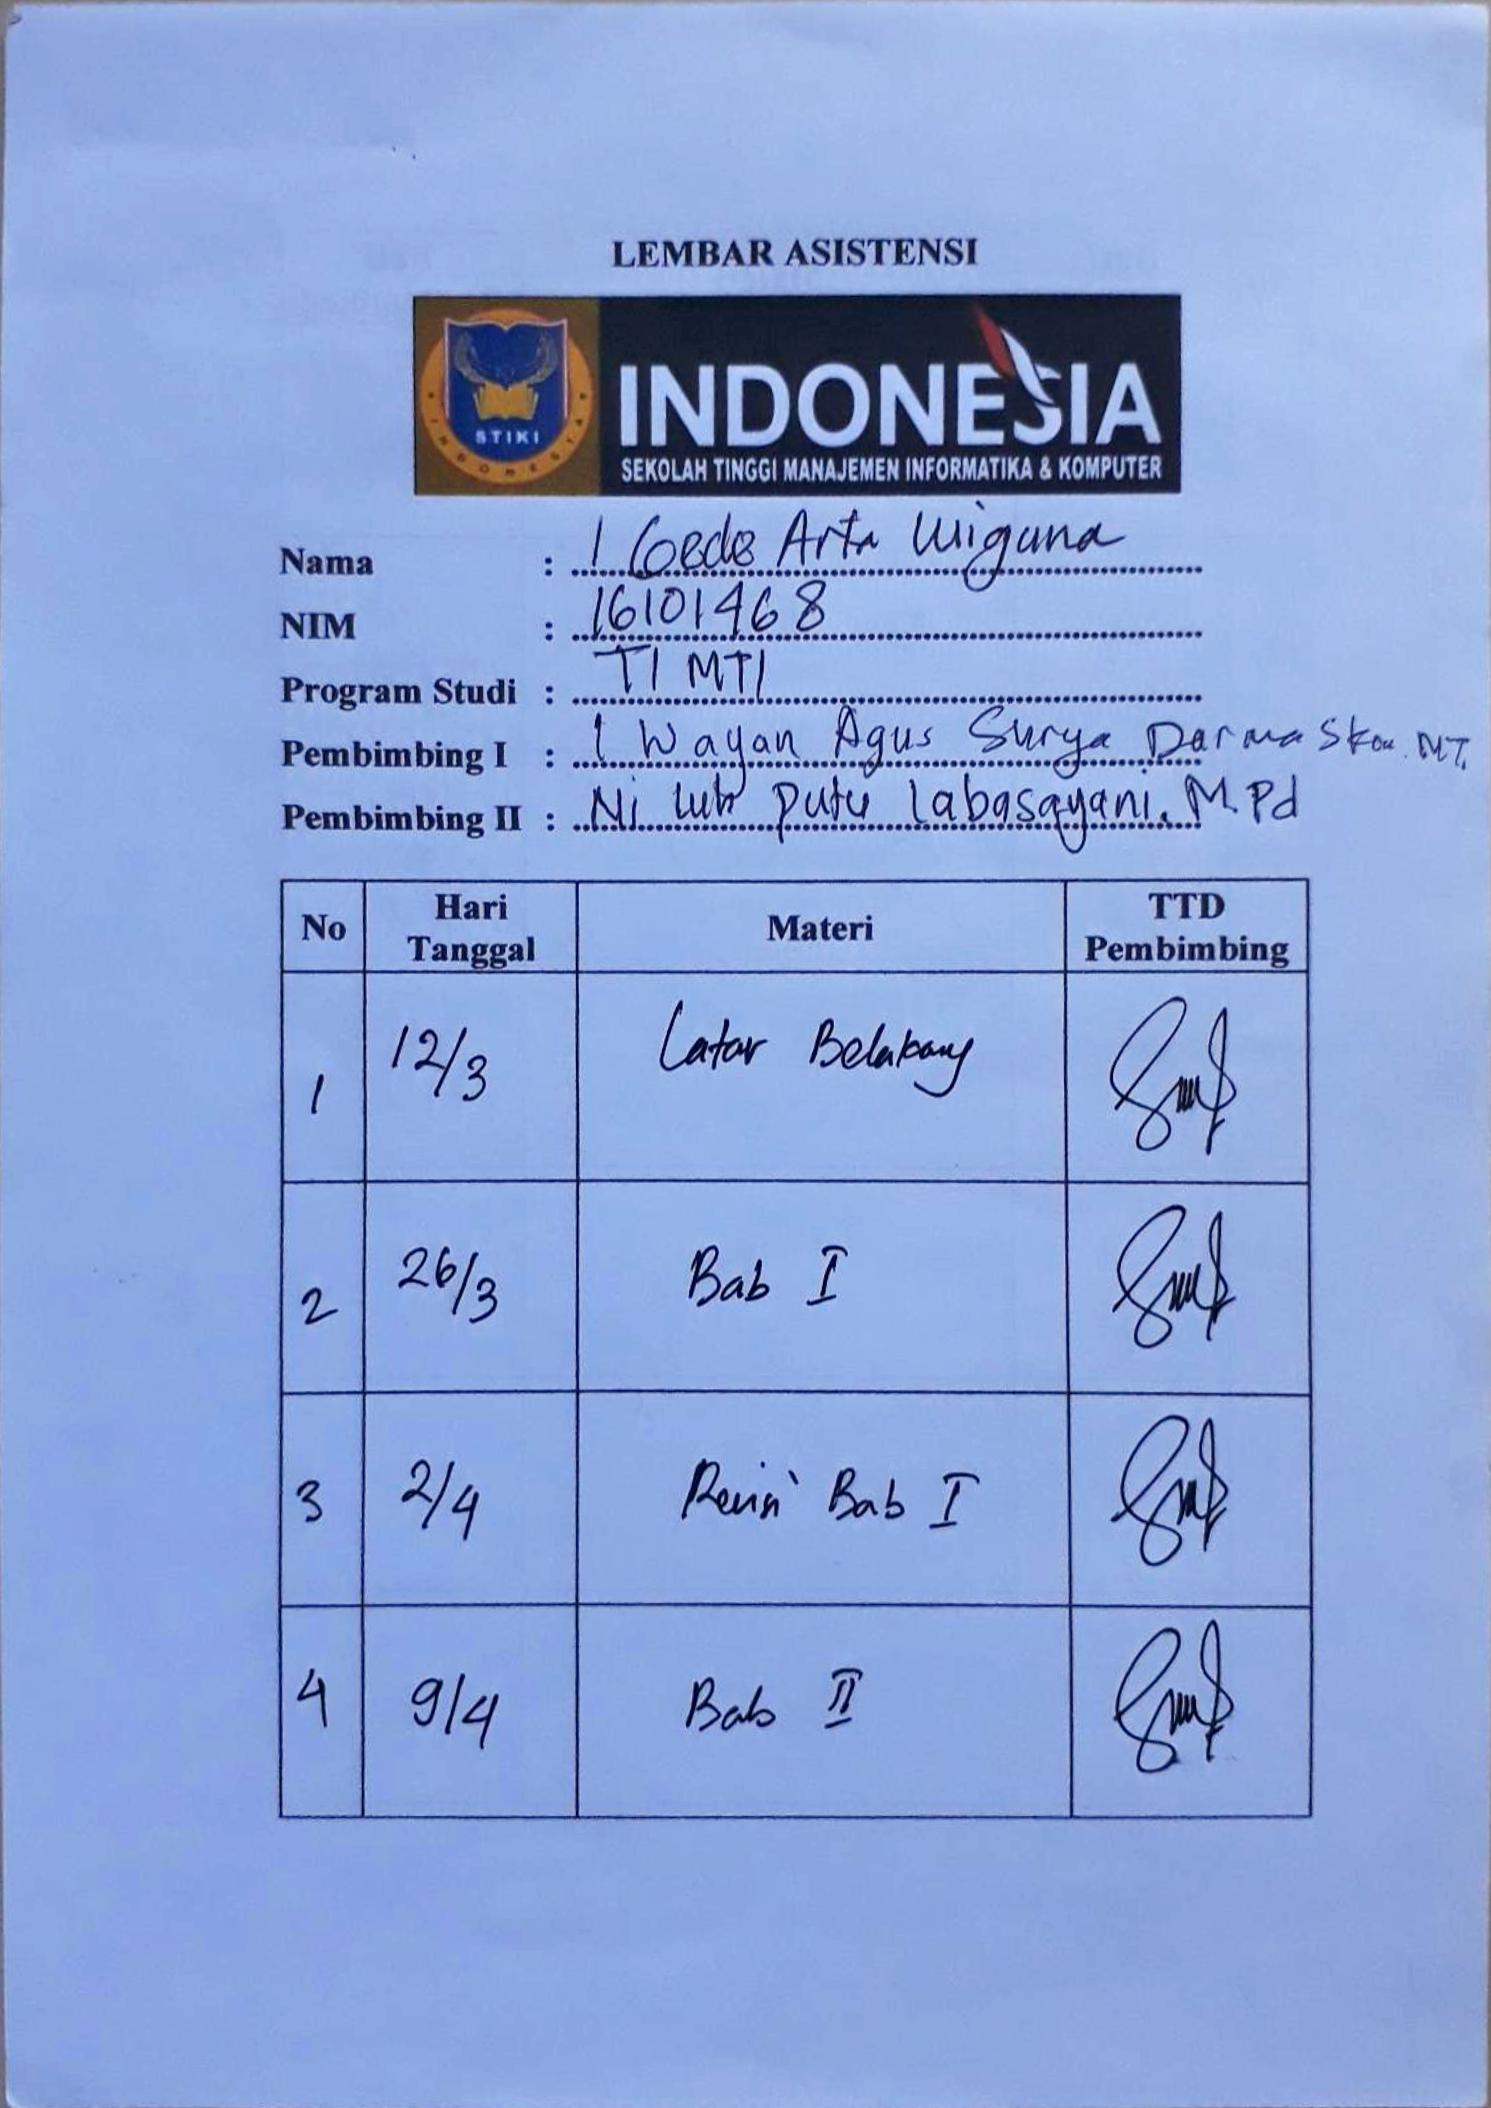 LEMBAR ASISTENSI
STIKI
INDONESIA
INDONESIA
SEKOLAH TINGGI MANAJEMEN INFORMATIKA & KOMPUTER
Nama : I Gede Arta Wiguna
NIM : 16101468
Program Studi : TI MTI
Pembimbing I : I Wayan Agus Surya Darma SKom. MT.
Pembimbing II : Ni Luh Putu Labasayani. M.Pd
No Hari Tanggal Materi TTD Pembimbing
1 12/3 Latar Belakang
2 26/3 Bab I
3 2/4 Revisi Bab I
4 9/4 Bab II